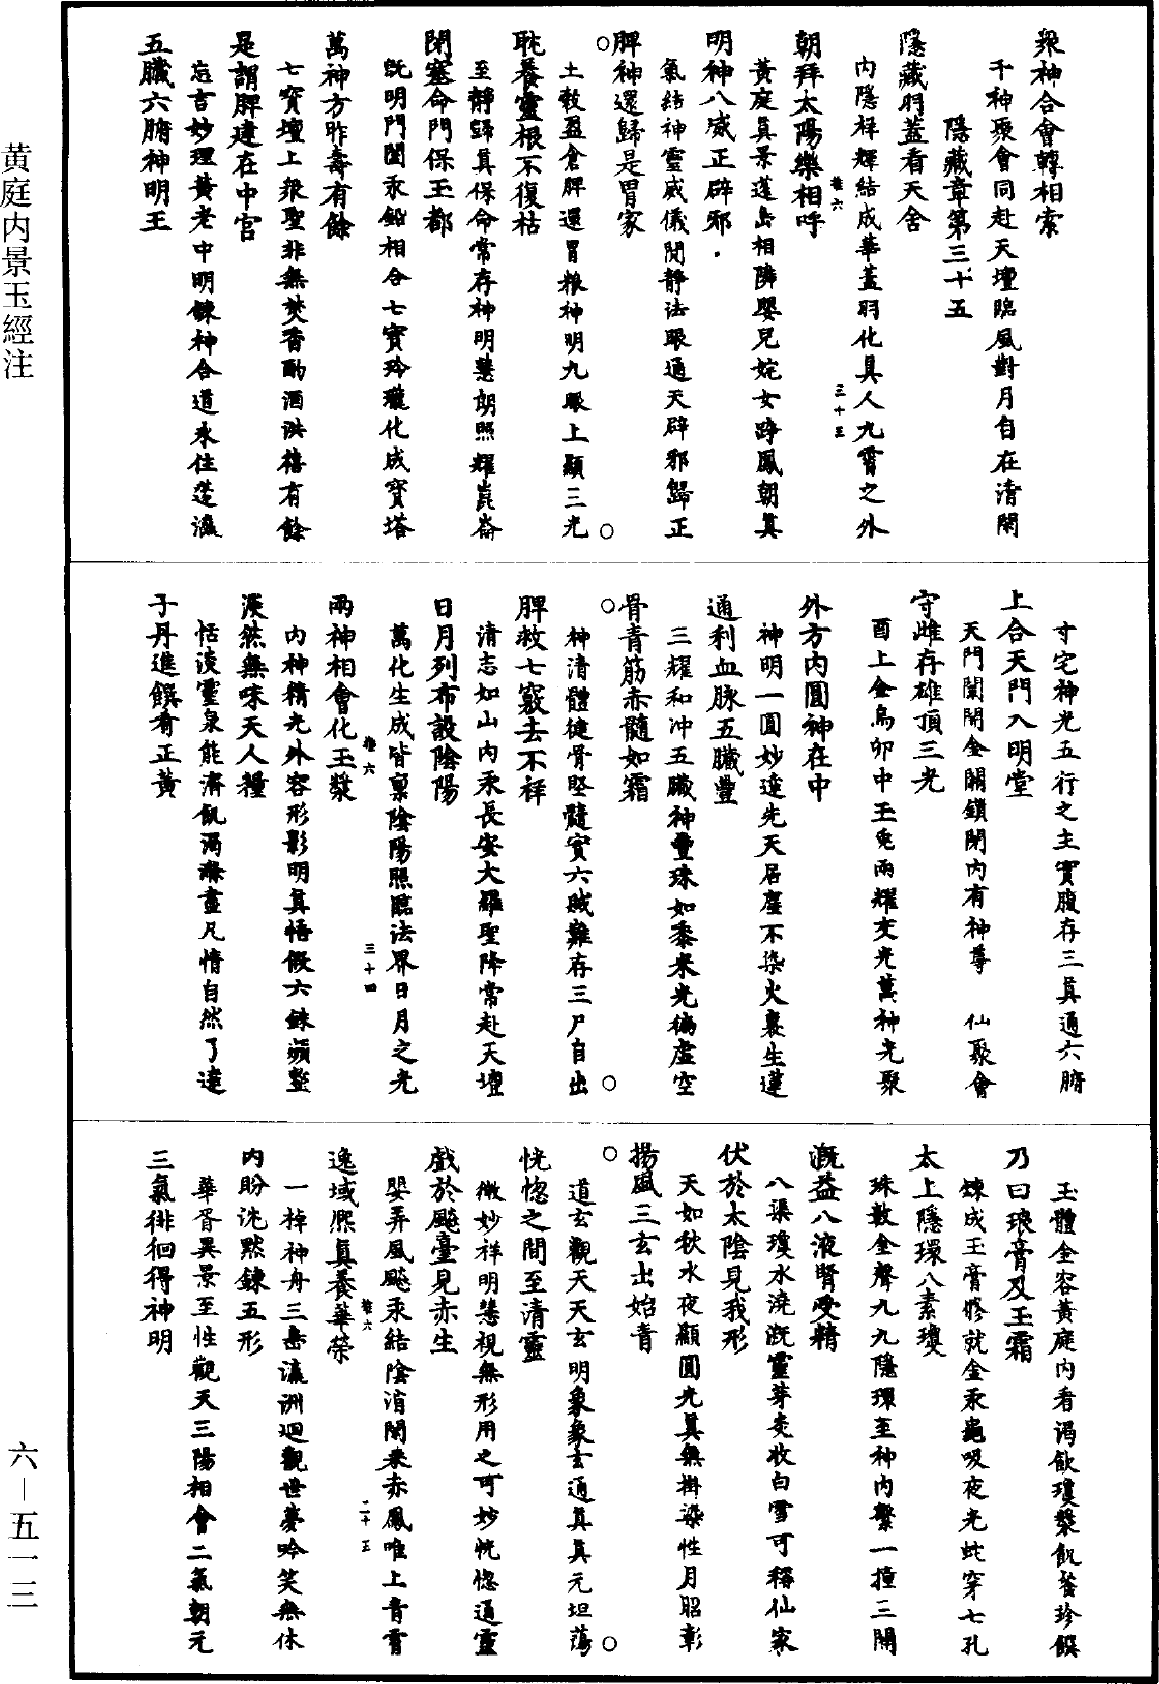 衆神合會轉相索
千神聚會同赴天壇臨風對月自在清閑
隱藏章第三十五
隱藏羽蓋看天舍
内隱祥輝結成華蓋羽化真人九霄之外
卷六
三十三
朝拜太陽樂相呼
黃庭真景蓬島相隣嬰兒姹女跨鳳朝真
明神八威正辟邪
氣結神靈威儀閑靜法眼通天辟邪歸正
脾神還歸是胃家
土敕盈倉脾還胃粮神明九眼上顯三光
耽養靈根不復枯
至靜歸真保命常存神明慧朗照耀崑崙
閉塞命門保玉都
旣明門閫汞鉛相合七寶玲瓏化成寶塔
萬神方昨壽有餘
七寶壇上衆聖非無焚香酌酒洪禧有餘
是謂脾建在中宮
忘言妙理黃老中明鍊神合道永住蓬瀛
五臟六腑神明王
寸宅神光五行之主實腹存三真通六腑
上合天門入明堂
天門闔開金關鎖閉内有神尊 仙聚會
守雌存雄頂三光
酉上金烏卯中玉兎兩耀交光萬神光聚
外方内圓神在中
神明一圓妙達先天居塵不染火裏生蓮
通利血脉五臟豐
三耀和冲五臟神豐珠如黍米光徧虛空
骨青筋赤髓如霜
神清體健骨堅髓實六賊難存三尸自出
脾救七竅去不祥
清志如山内汞長安大羅聖降常赴天壇
日月列布設陰陽
萬化生成皆禀陰陽照臨法界日月之光
卷六
三十四
兩神相會化玉漿
内神精光外容形影明真悟假六銖嬾整
淡然無味天人糧
恬淡靈泉能濟飢渴滌盡凡情自然了達
子丹進饌肴正黃
玉體金容黃庭内看渴飲瓊漿飢餐珍饌
乃曰琅膏及玉霜
鍊成玉膏修就金汞龜吸夜光蛇穿七孔
太上隱環八素瓊
珠敲金聲九九隱環至神内繫一撞三關
漑益八液腎受精
八渠瓊水澆漑靈芽麦收白雪可稱仙家
伏於太陰見我形
天如秋水夜顯圓光真無掛染性月昭彰
揚風三玄出始青
道玄觀天天玄明象象玄通真真元坦蕩
恍惚之間至清靈
微妙祥明慧視無形用之可妙恍惚通靈
戲於飇臺見赤生
嬰弄風飇汞結陰消閑乘赤鳳唯上青霄
卷六
三十五
逸域熙真養華榮
一棹神舟三島瀛洲迴觀世夢吟笑無休
内盼沈默鍊五形
華胥異景至性觀天三陽相會二氣朝元
三氣徘徊得神明
黃庭内景玉經注
六—五一三